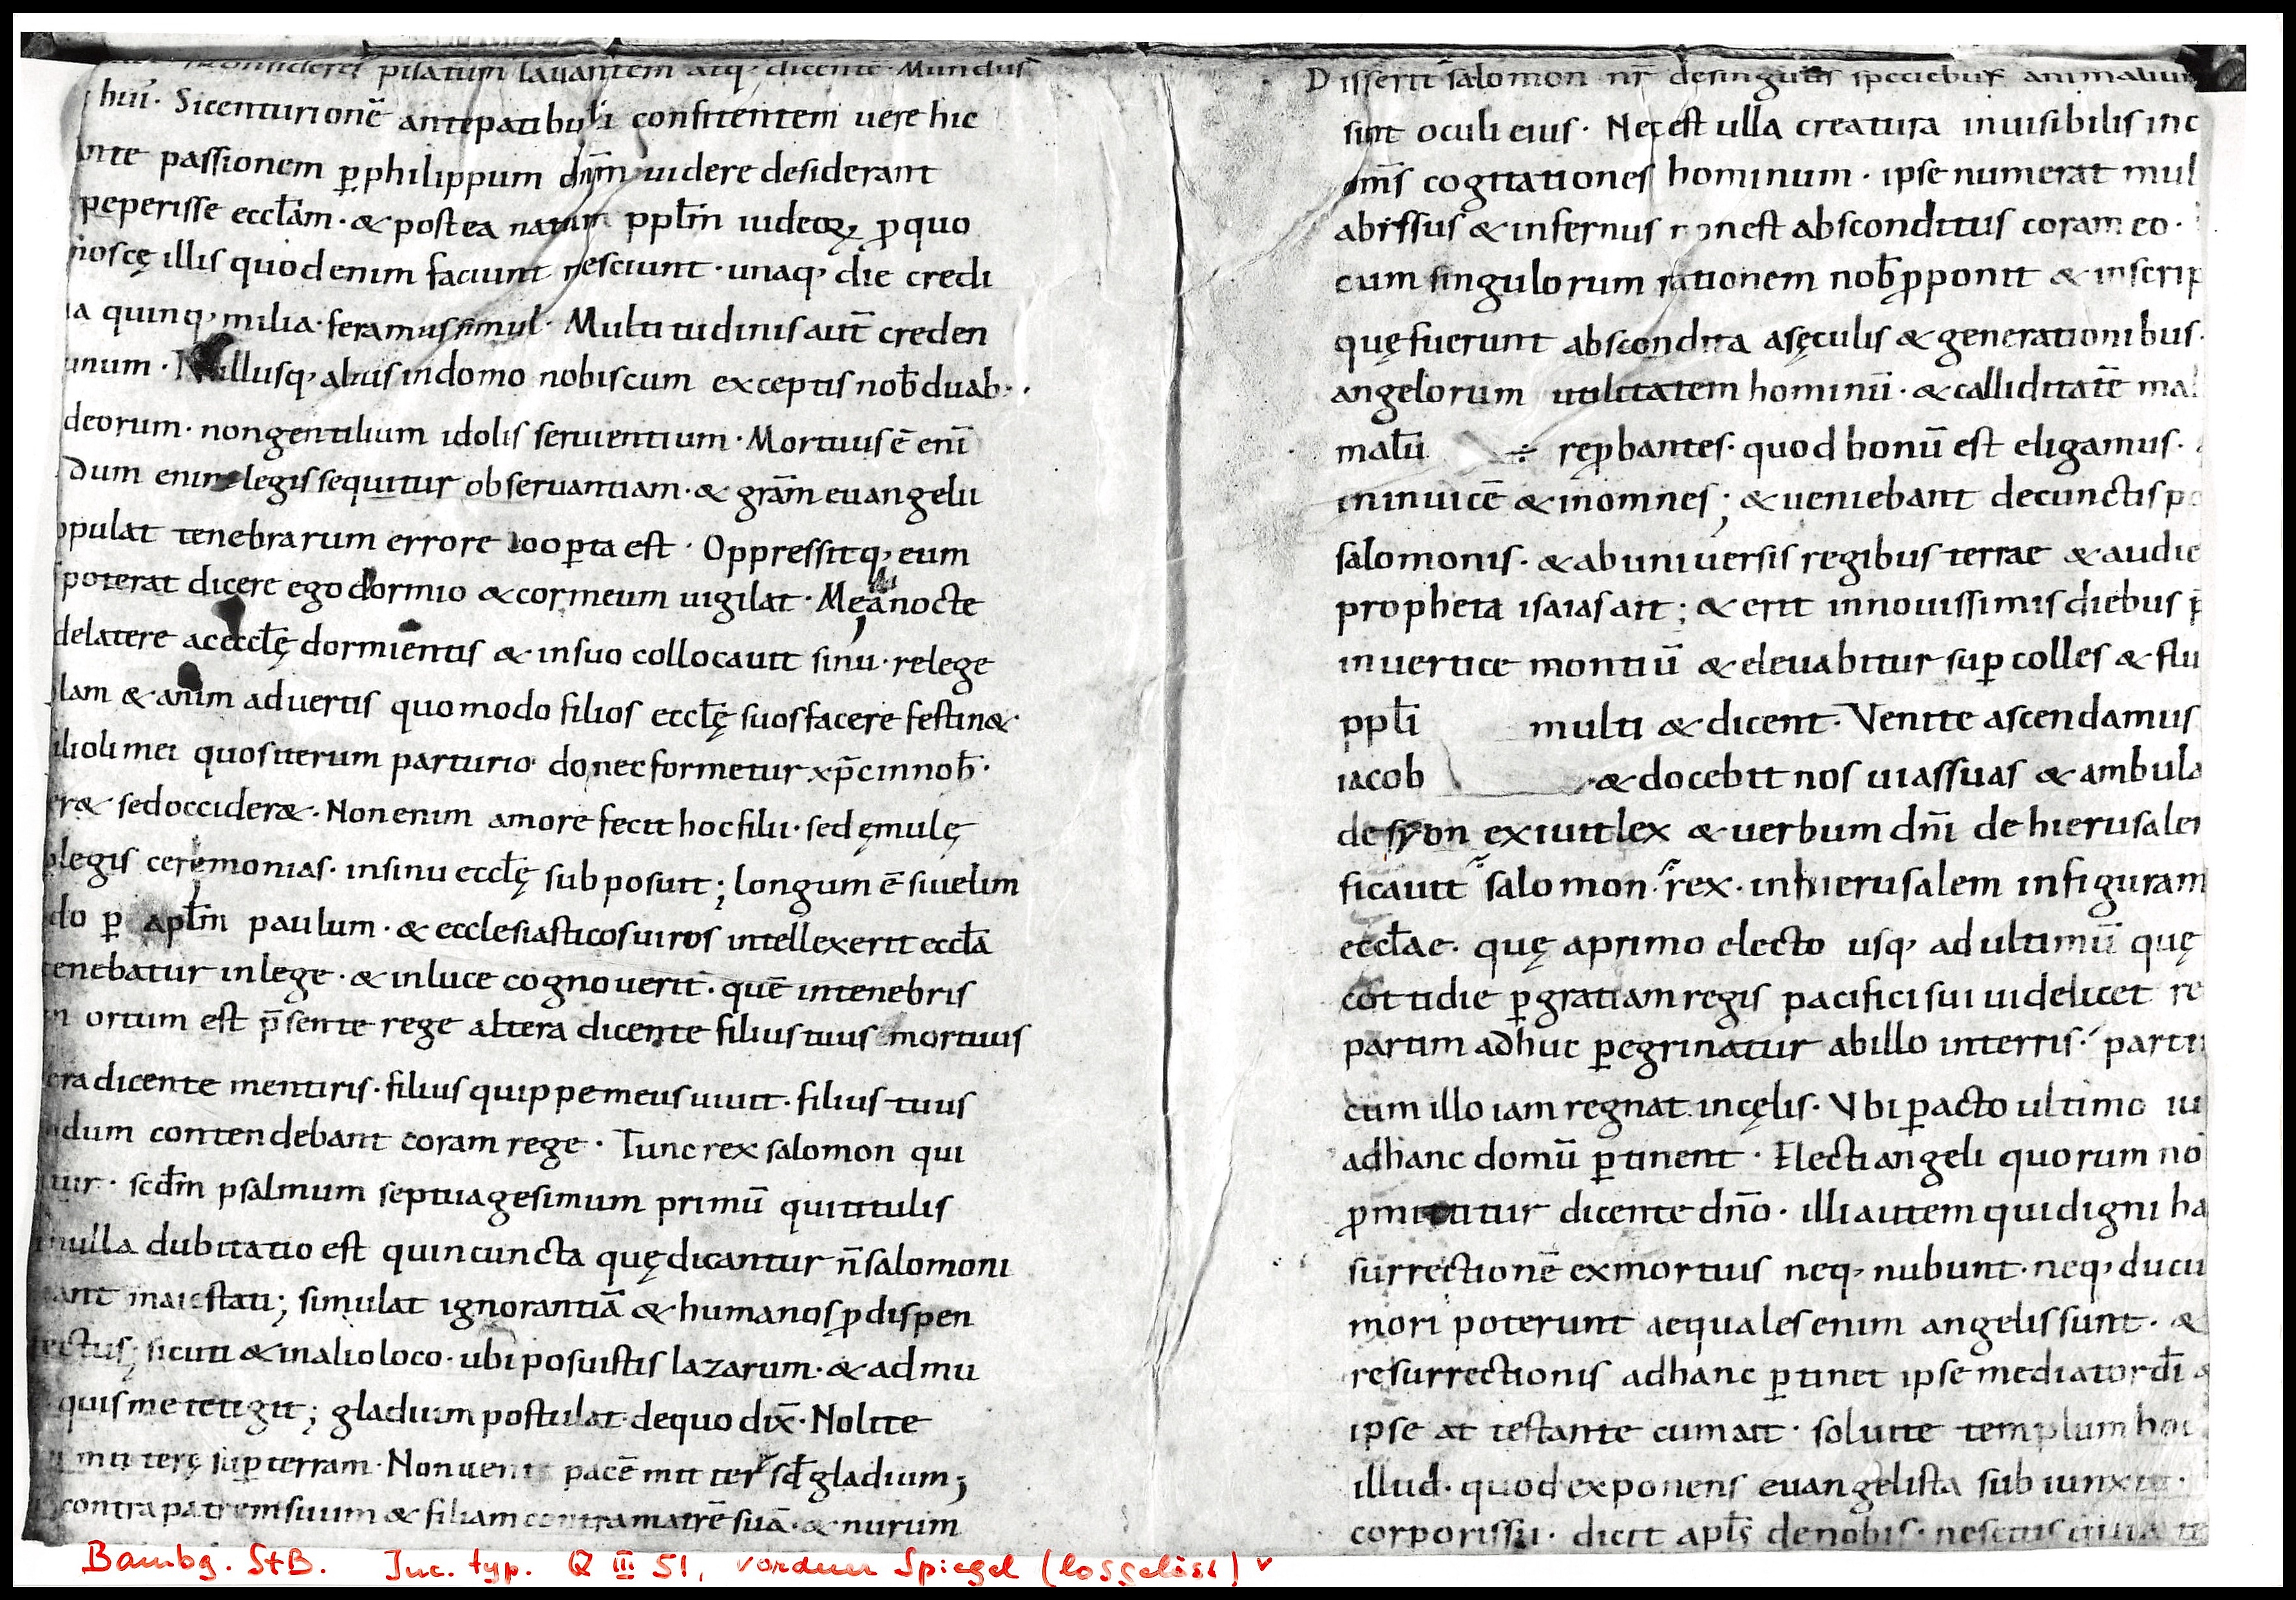 pilatum lauantem atq; dicentē Mundus
hui· Sicenturionē antepatibuli confitentem uere hic
nte passionem ꝑ philippum dn̄m uidere desiderant
peperisse eccl̄am· & postea natum ppl̄m iudeoꝝ ꝓ quo
noscę illis quod enim faciunt nesciunt· unaq; die credi
ia quinq; milia· feramus simul· Multitudinis aut̄ creden
unum· Nullusq; alius indomo nobiscum exceptis nob̄ duab·
deorum· non gentilium idolis seruientium· Mortuus ē enī
dum enim legis sequitur obseruantiam· & grām euangelii
opulat tenebrarum errore cooꝑta est· Oppressitq; eum
poterat dicere ego dormio & cor meum uigilat· Mea nocte
delatere ac eccl̄ę dormientis & insuo collocauit sinu· relege
lam & anim aduertis quomodo filios eccl̄ę suos facere festin&·
ilioli mei quos iterum parturio donec formetur xp̄c innob̄·
er& sed occider&· Non enim amore fecit hoc filii· sed ęmulę
legis ceremonias· insinu eccl̄ę subposuit; longum ē si uelim
do ꝑ apl̄m paulum· & ecclesiasticos uiros intellexerit eccl̄a
tenebatur inlege· & inluce cognouerit· quē intenebris
n ortum est p̄sente rege altera dicente filius tuus mortuus
era dicente mentiris· filius quippe meus uiuit· filius tuus
dum contendebant coram rege· Tunc rex salomon qui
tur· scd̄m psalmum septuagesimum primū qui titulis
nulla dubitatio est quin cuncta quę dicantur n̄ salomoni
ant maiestati; simulat ignorantiā & humanos ꝓ dispen
ectus; sicuti & inalio loco· ubi posuistis lazarum· & ad mu
quis me tetigit; gladium postulat de quo dix̄· Nolite
i mittere suꝑ terram· Non ueni pacē mitter sd̄ gladium;
contra patrem suum & filiam contra matrē suā· & nurum
Disserit salomon nr̄ desingulis speciebus animalium
sunt oculi eius· Nec est ulla creatura inuisibilis inc
om̄s cogitationes hominum· ipse numerat mul
abissus & infernus non est absconditus coram eo·
cum singulorum rationem nob̄ ꝓponit & inscrip
quę fuerunt abscondita asęculis & generationibus·
angelorum utilitatem hominū· & calliditatē mal
malū ÷ reꝓbantes· quod bonū est eligamus·
ininuicē & inomnes; & ueniebant decunctis po
salomonis· & ab uniuersis regibus terrae & audie
propheta isaias ait; & erit innouissimis diebus p̄
inuertice montiū & eleuabitur suꝑ colles & flu
ppl̄i multi & dicent· Venite ascendamus
iacob & docebit nos uias suas & ambula
de syon exiuit lex & uerbum dn̄i de hierusalem
ficauit salomon· rex· inhierusalem infiguram
eccl̄ae· quę aprimo electo usq; ad ultimū quę
cottidie ꝑ gratiam regis pacifici sui uidelicet re
partim adhuc ꝑegrinatur abillo interris· parti
cum illo iam regnat incęlis· Vbi ꝑacto ultimo iu
adhanc domū ꝑtinent· Electi angeli quorum no
ꝓmittitur dicente dn̄o· illi autem qui digni ha
surrectionē exmortuis neq; nubunt· neq; ducu
mori poterunt aequales enim angelis sunt· &
resurrectionis adhanc ꝑtinet ipse mediator dī
ipse at testante cum ait· soluite templum hoc
illud· quod exponens euangelista subiunxit·
corporis sui· dicit apl̄s denobis· nescitis quia te
Bambg. StB. Inc. typ. Q III 51, vorderer Spiegel (losgelöst)